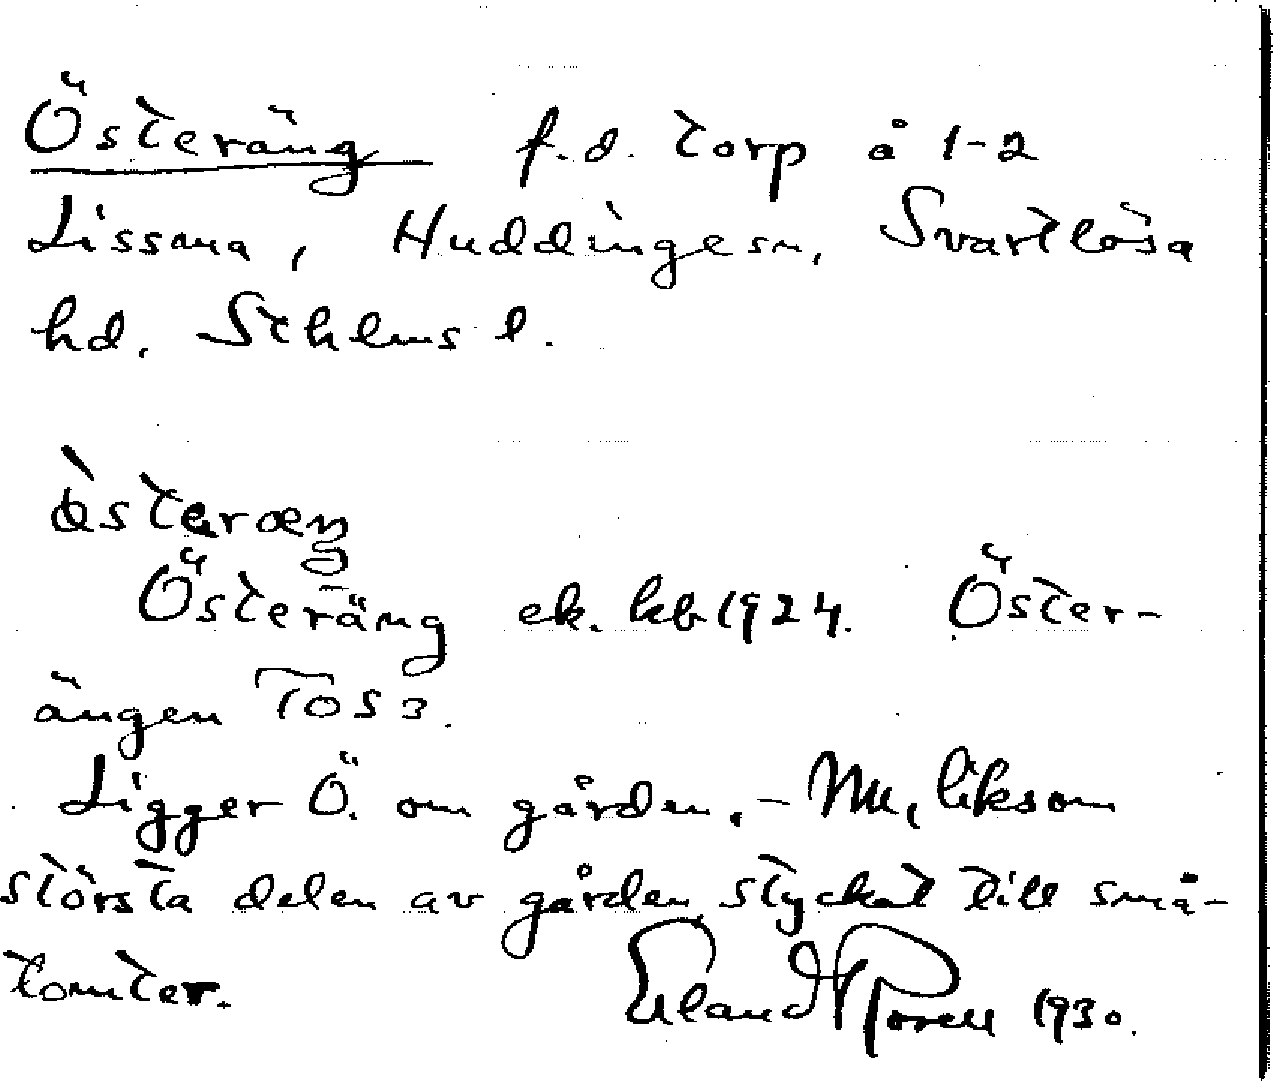 Österäng f.d. torp å 1-2
Lissma, Huddinge sn, Svartlösa
hd. Sthlms l.
ö̀steræŋ
Österäng ek. kb 1924. Öster-
ängen TOS 3.
Ligger Ö. om gården. – Nu, liksom
största delen av gården, styckat till små-
tomter.
Erland 1930.